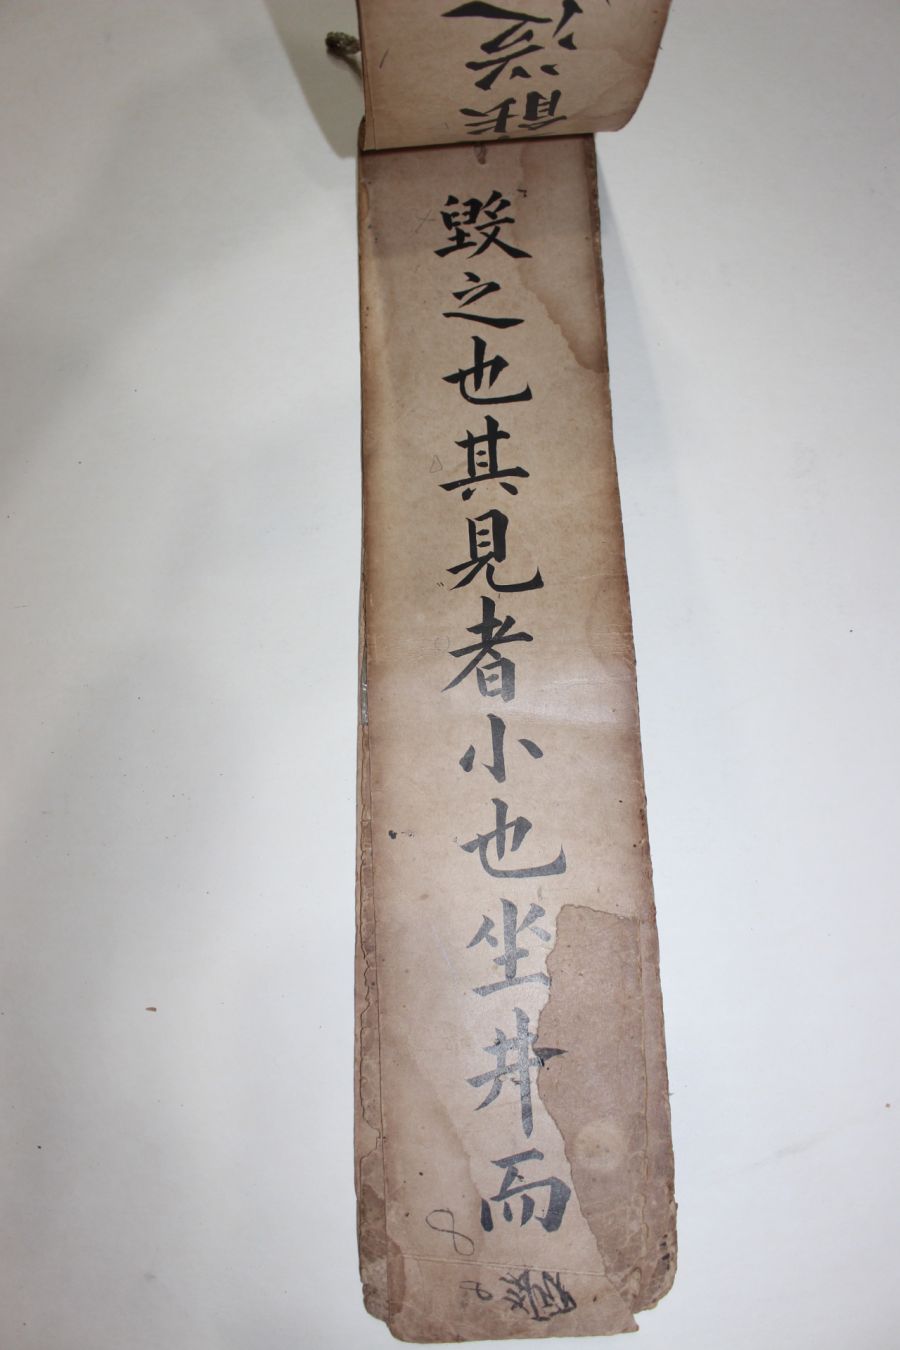 毀之也其見者小也坐井而
8